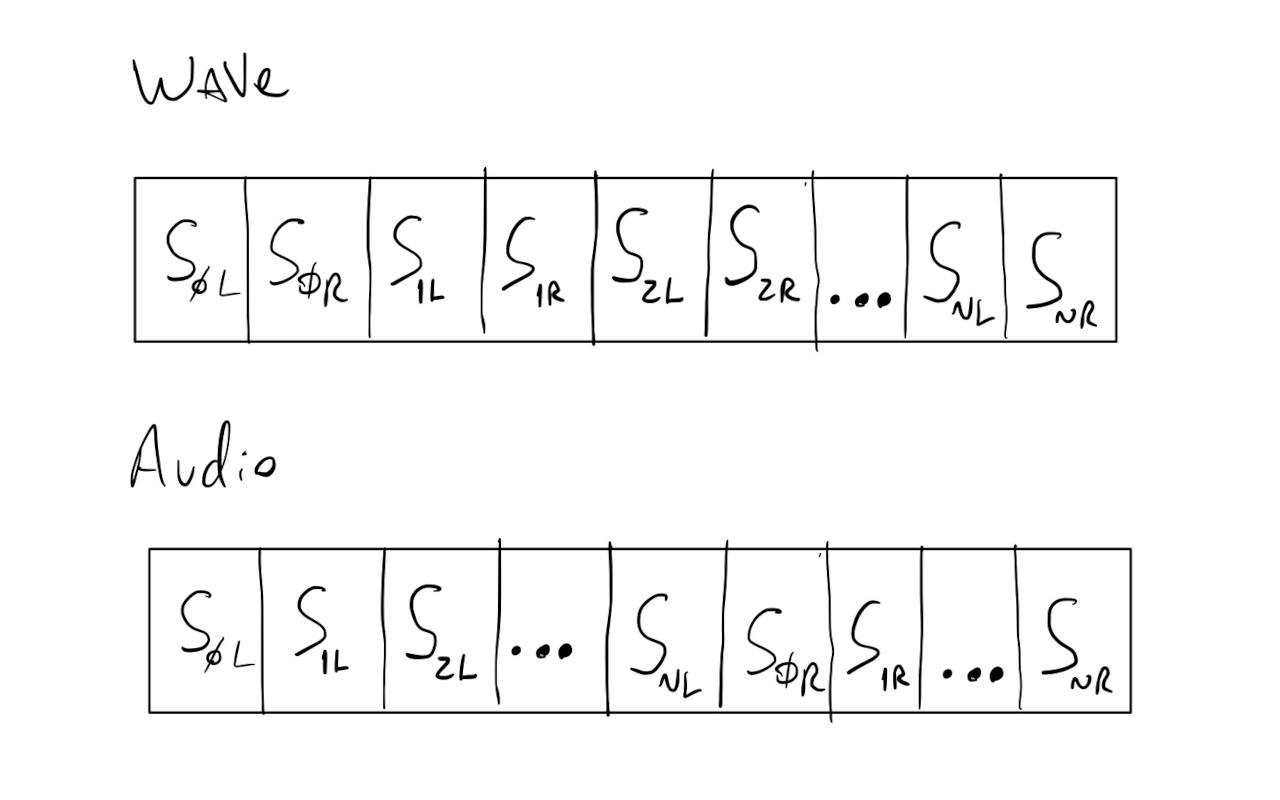 WAVe
SØL SØR S1L S1R S2L S2R ... SNL SNR
Audio
SØL S1L S2L ... SNL SØR S1R ... SNR